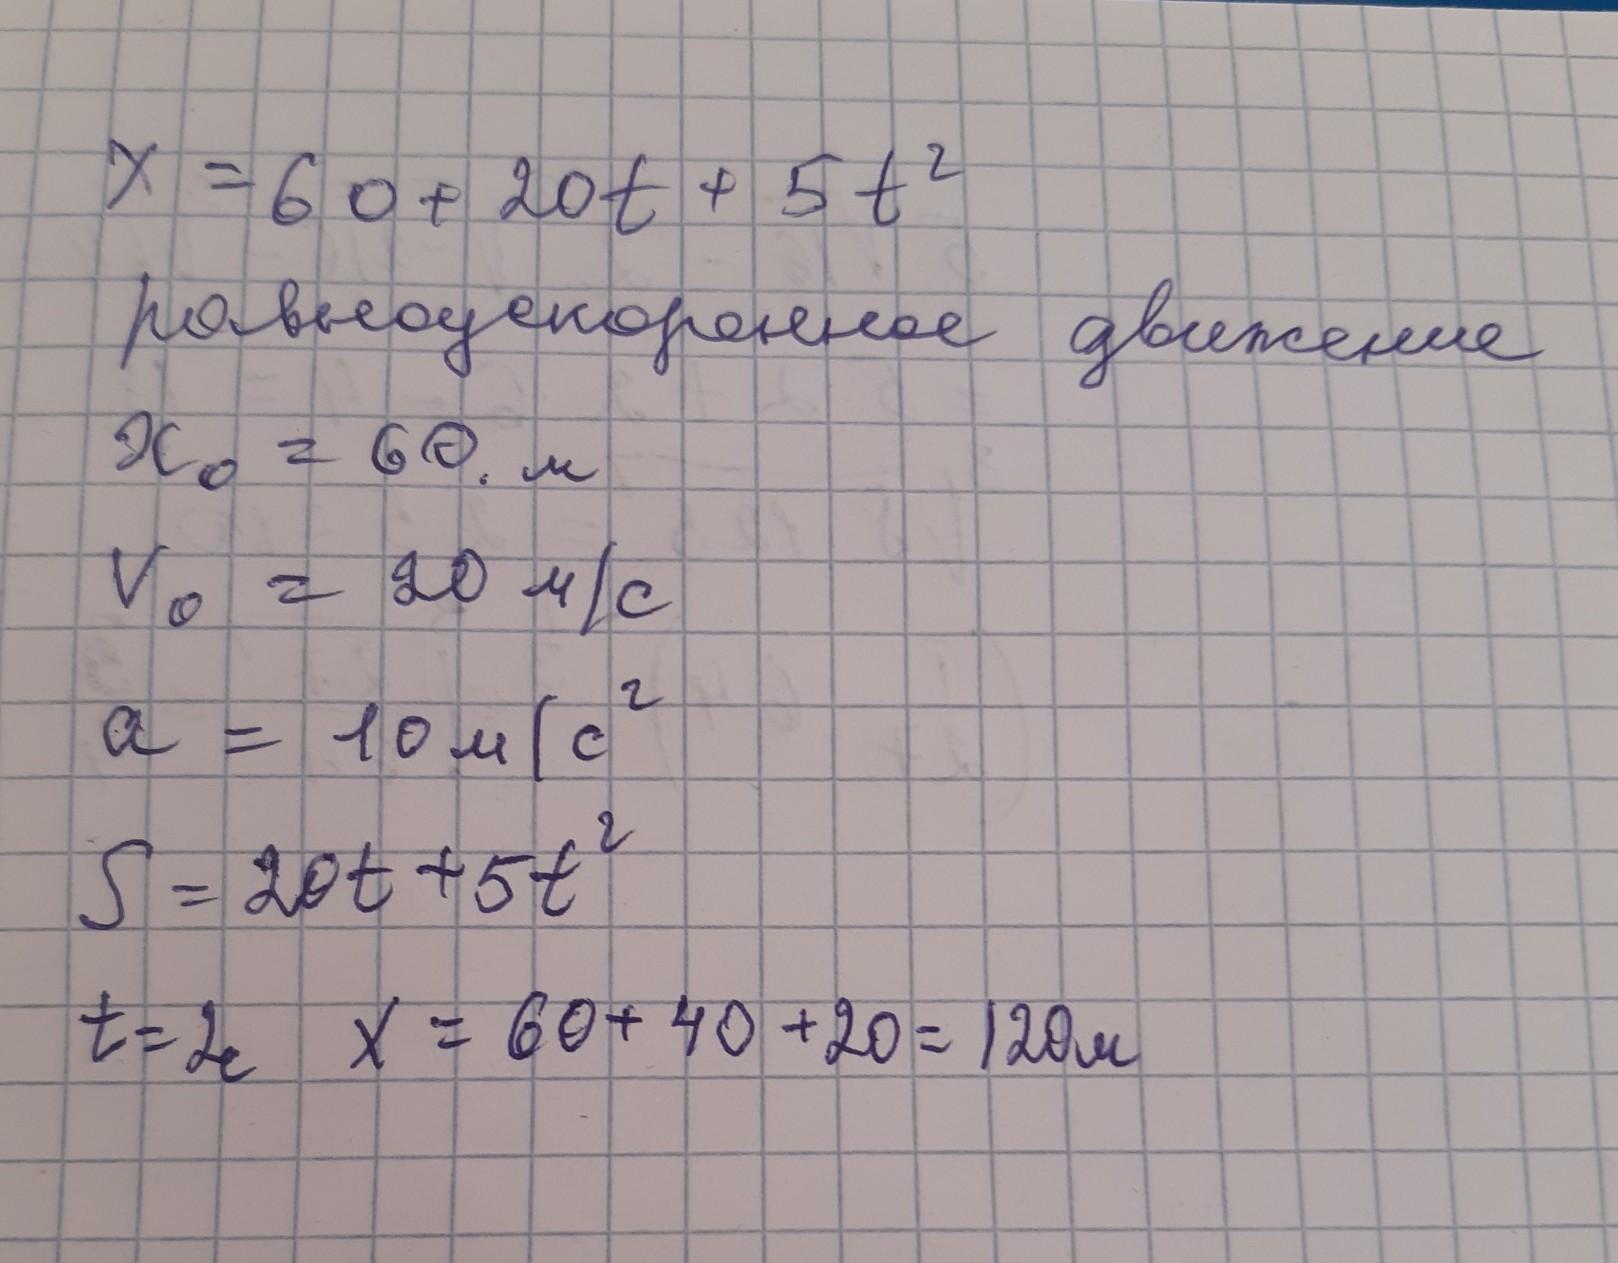 x = 60 + 20t + 5t²
равноускоренное движение
x₀ = 60. м
v₀ = 20 м/с
a = 10 м/с²
S = 20t + 5t²
t = 2с x = 60 + 40 + 20 = 120м